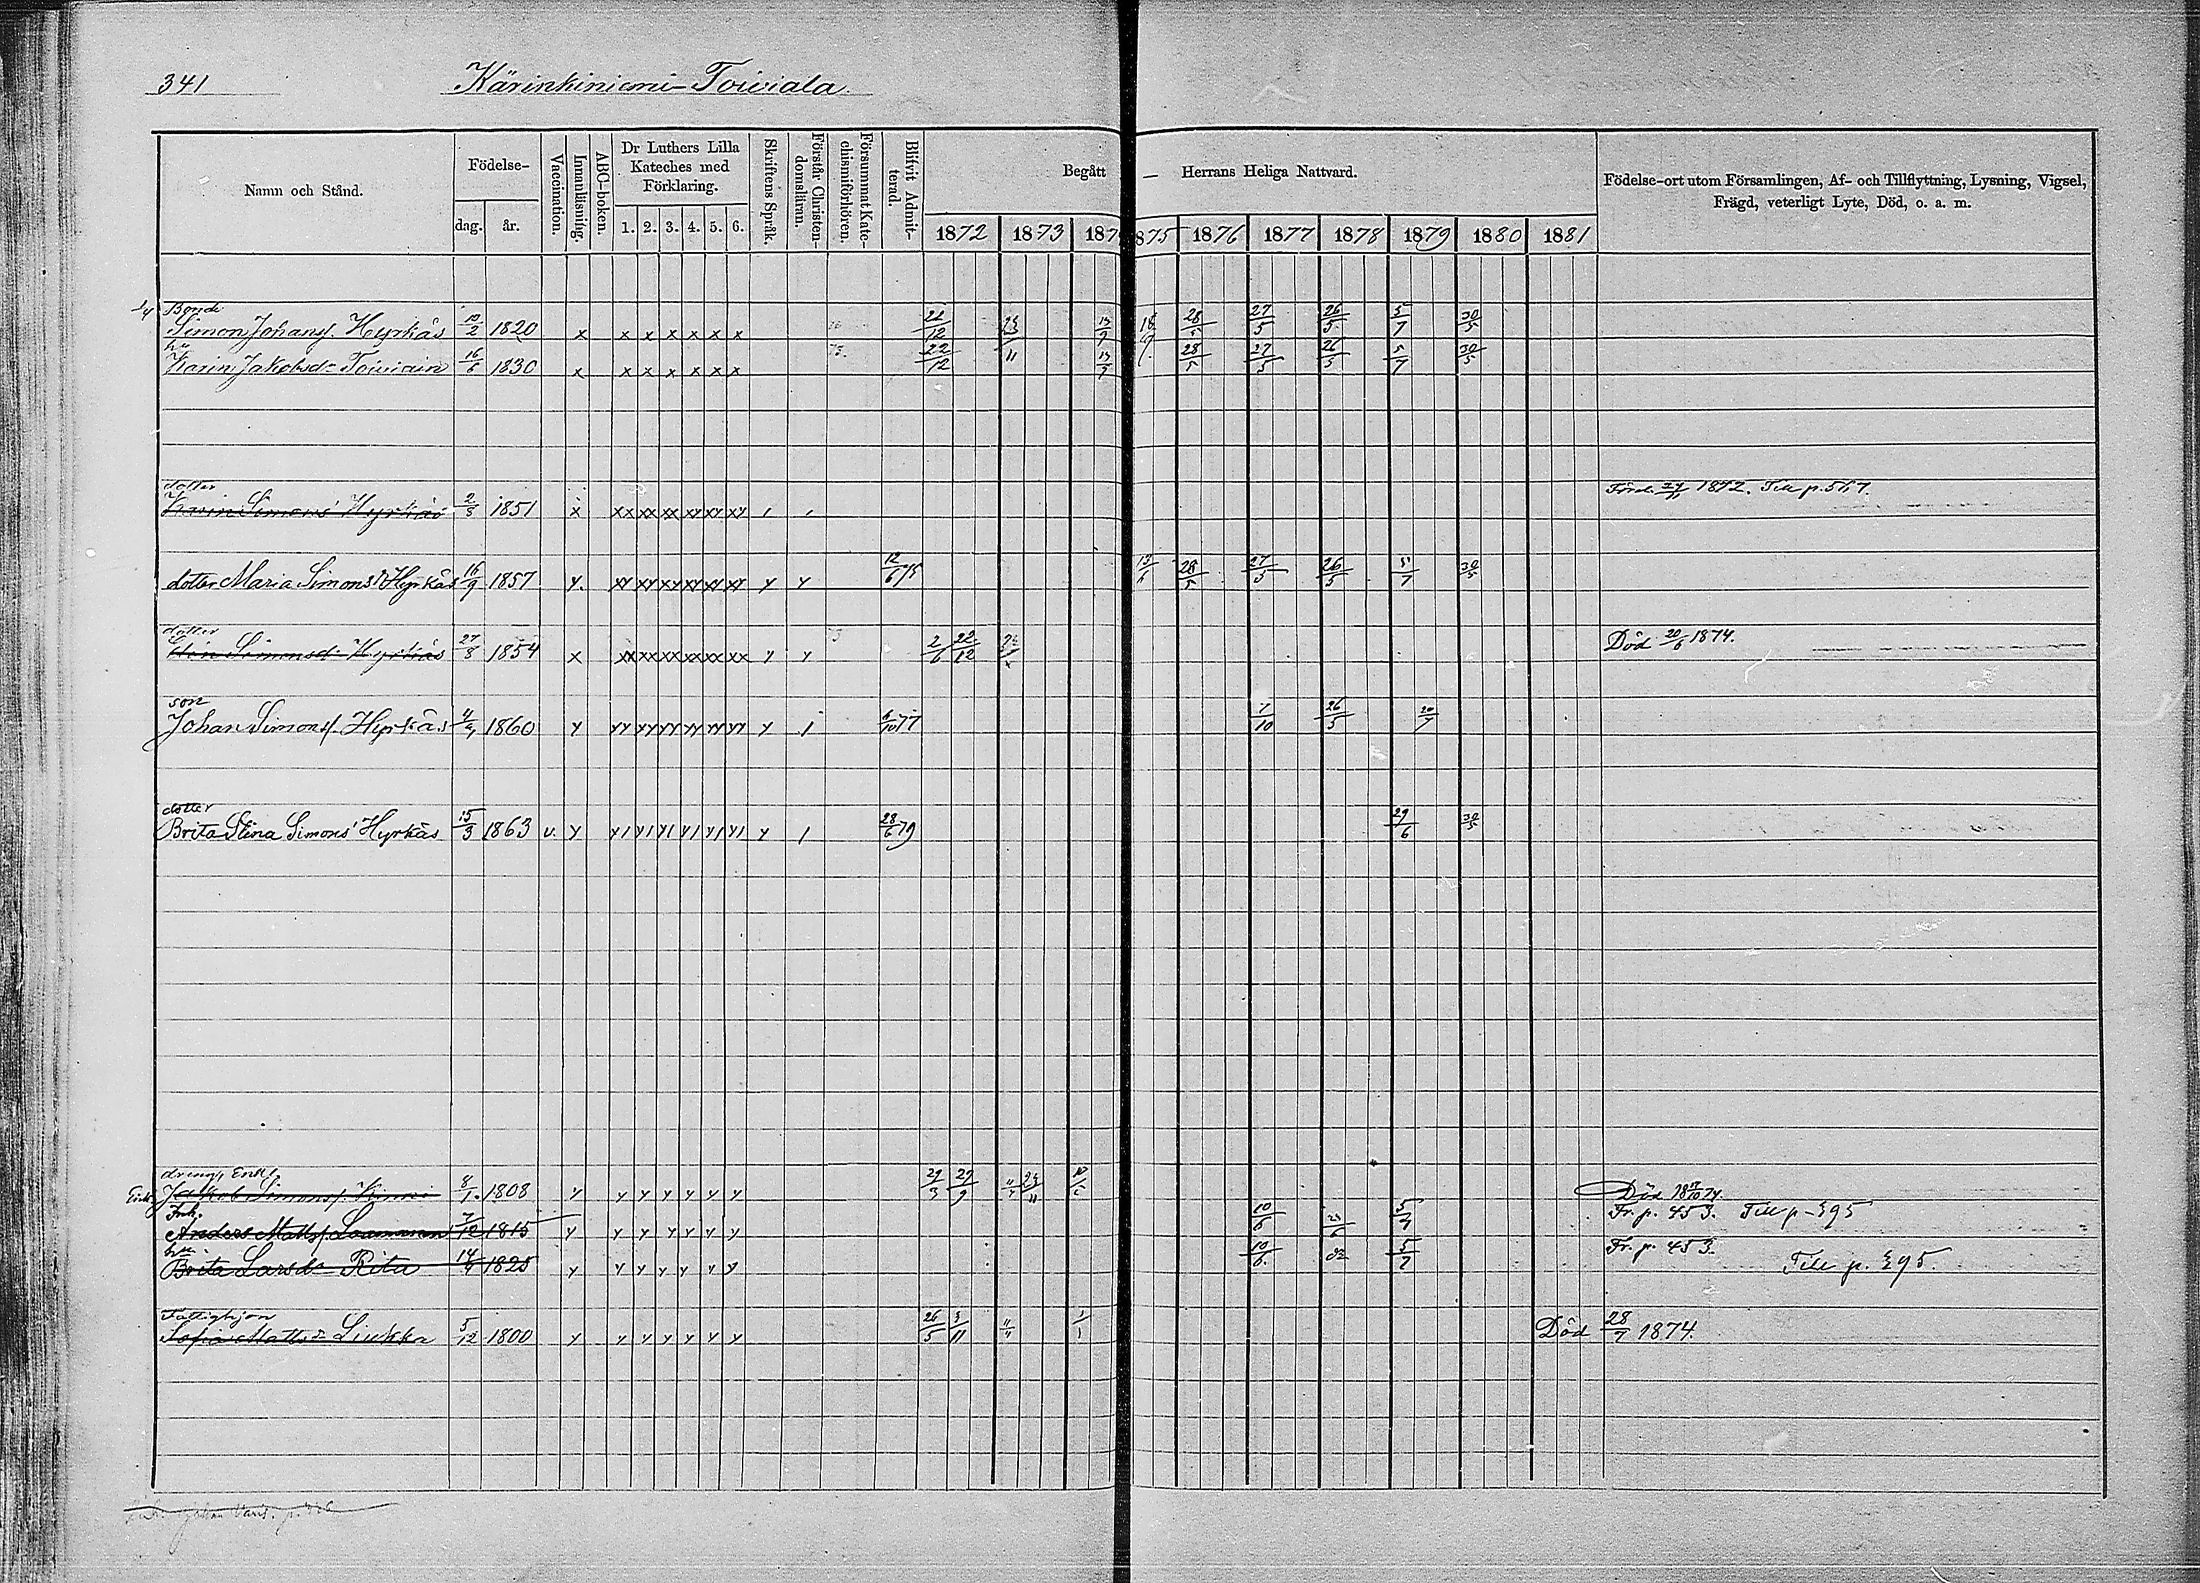 341 Kärinkiniemi-Toiviala
Namn och Stånd.
Födelse-
dag. år.
Vaccination.
Innanläsning.
ABC-boken.
Dr Luthers Lilla
Kateches med
Förklaring.
1. 2. 3. 4. 5. 6.
Skriftens Språk.
Förstår Christen-
domsläran.
Försummat Kate-
chismiförhören.
Blifvit Admit-
terad.
Begått — Herrans Heliga Nattvard.
1872 1873 187 875 1876 1877 1878 1879 1880 1881
Födelse-ort utom Församlingen, Af- och Tillflyttning, Lysning, Vigsel,
Frägd, veterligt Lyte, Död, o. a. m.
1/4 Bonde
Simon Johans. Hyrkäs 10/2 1820 x x x x x x x 22/12 28/5 27/5 26/5 5/7 30/5
hu
Karin Jakobsdr Toiviain 16/6 1830 x x x x x x x 22/12 28/5 27/5 26/5 5/7 30/5
dotter
Karin Simons Hyrkäs 2/3 1851 x xx xx xx xx xx xx 1872. Till p. 567.
dotter Maria Simonsd Hyrkäs 16/9 1857 y. xy xy xy xy xy xy y y 12/6 75 28/5 27/5 26/5 5/7 30/5
dotter
Simonsd. Hyrkäs 27/8 1854 x xx xx xx xx xx xx y y 2/6 22/12 Död 20/6 1874.
son
Johan Simons. Hyrkäs 4/4 1860 y yy yy yy yy yy yy y 1 6/10 77 7/10 26/5 20/7
dotter
Brita Stina Simons' Hyrkäs 15/3 1863 v. y y1 y1 y1 y1 y1 y1 y 1 28/6 79 29/6 30/5
dreng, Enkl.
Jakob Simons. Kinni 8/1 1808 y y y y y y y 29/3 29/9 Död 18 74.
Inh.
Anders Matts. Laamanen 7/12 1815 y y y y y y y 10/6 5/7 Fr. p. 453. Till p. 395
hu
Brita Larsdr Rita 14/4 1825 y y y y y y y 10/6 5/7 Fr. p. 453. Till p. 395.
Fattighjon
Sofia Mattsdr Liukka 5/12 1800 y y y y y y y 26/5 3/11 Död 28/7 1874.